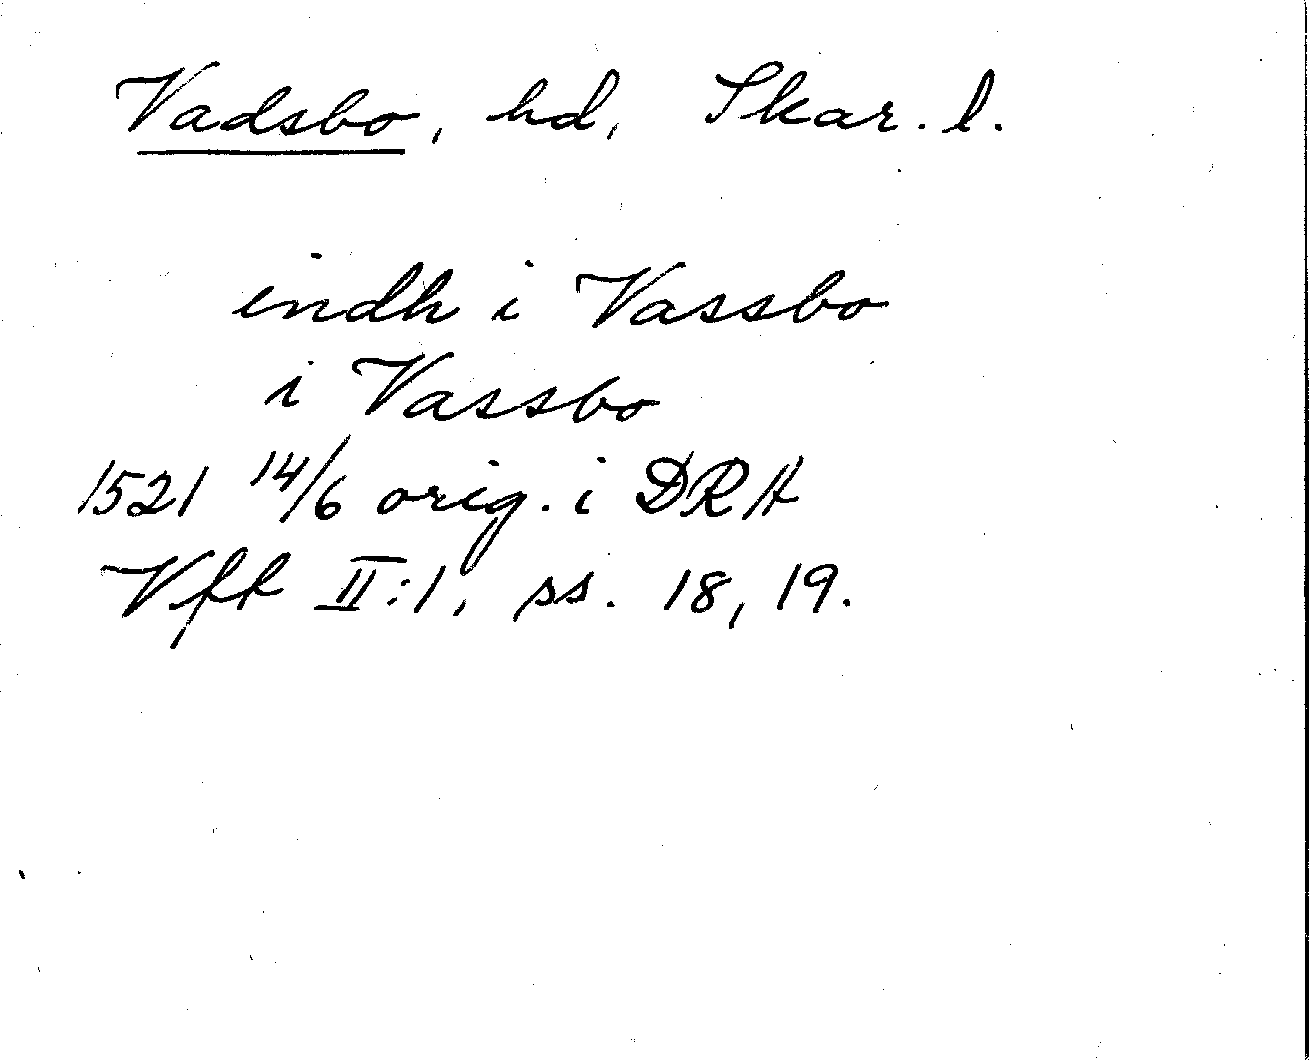 Vadsbo, hd, Skar. l.
indh i Vassbo
i Vassbo
1521 14/6 orig. i DRA
Vff II:1, ss. 18, 19.